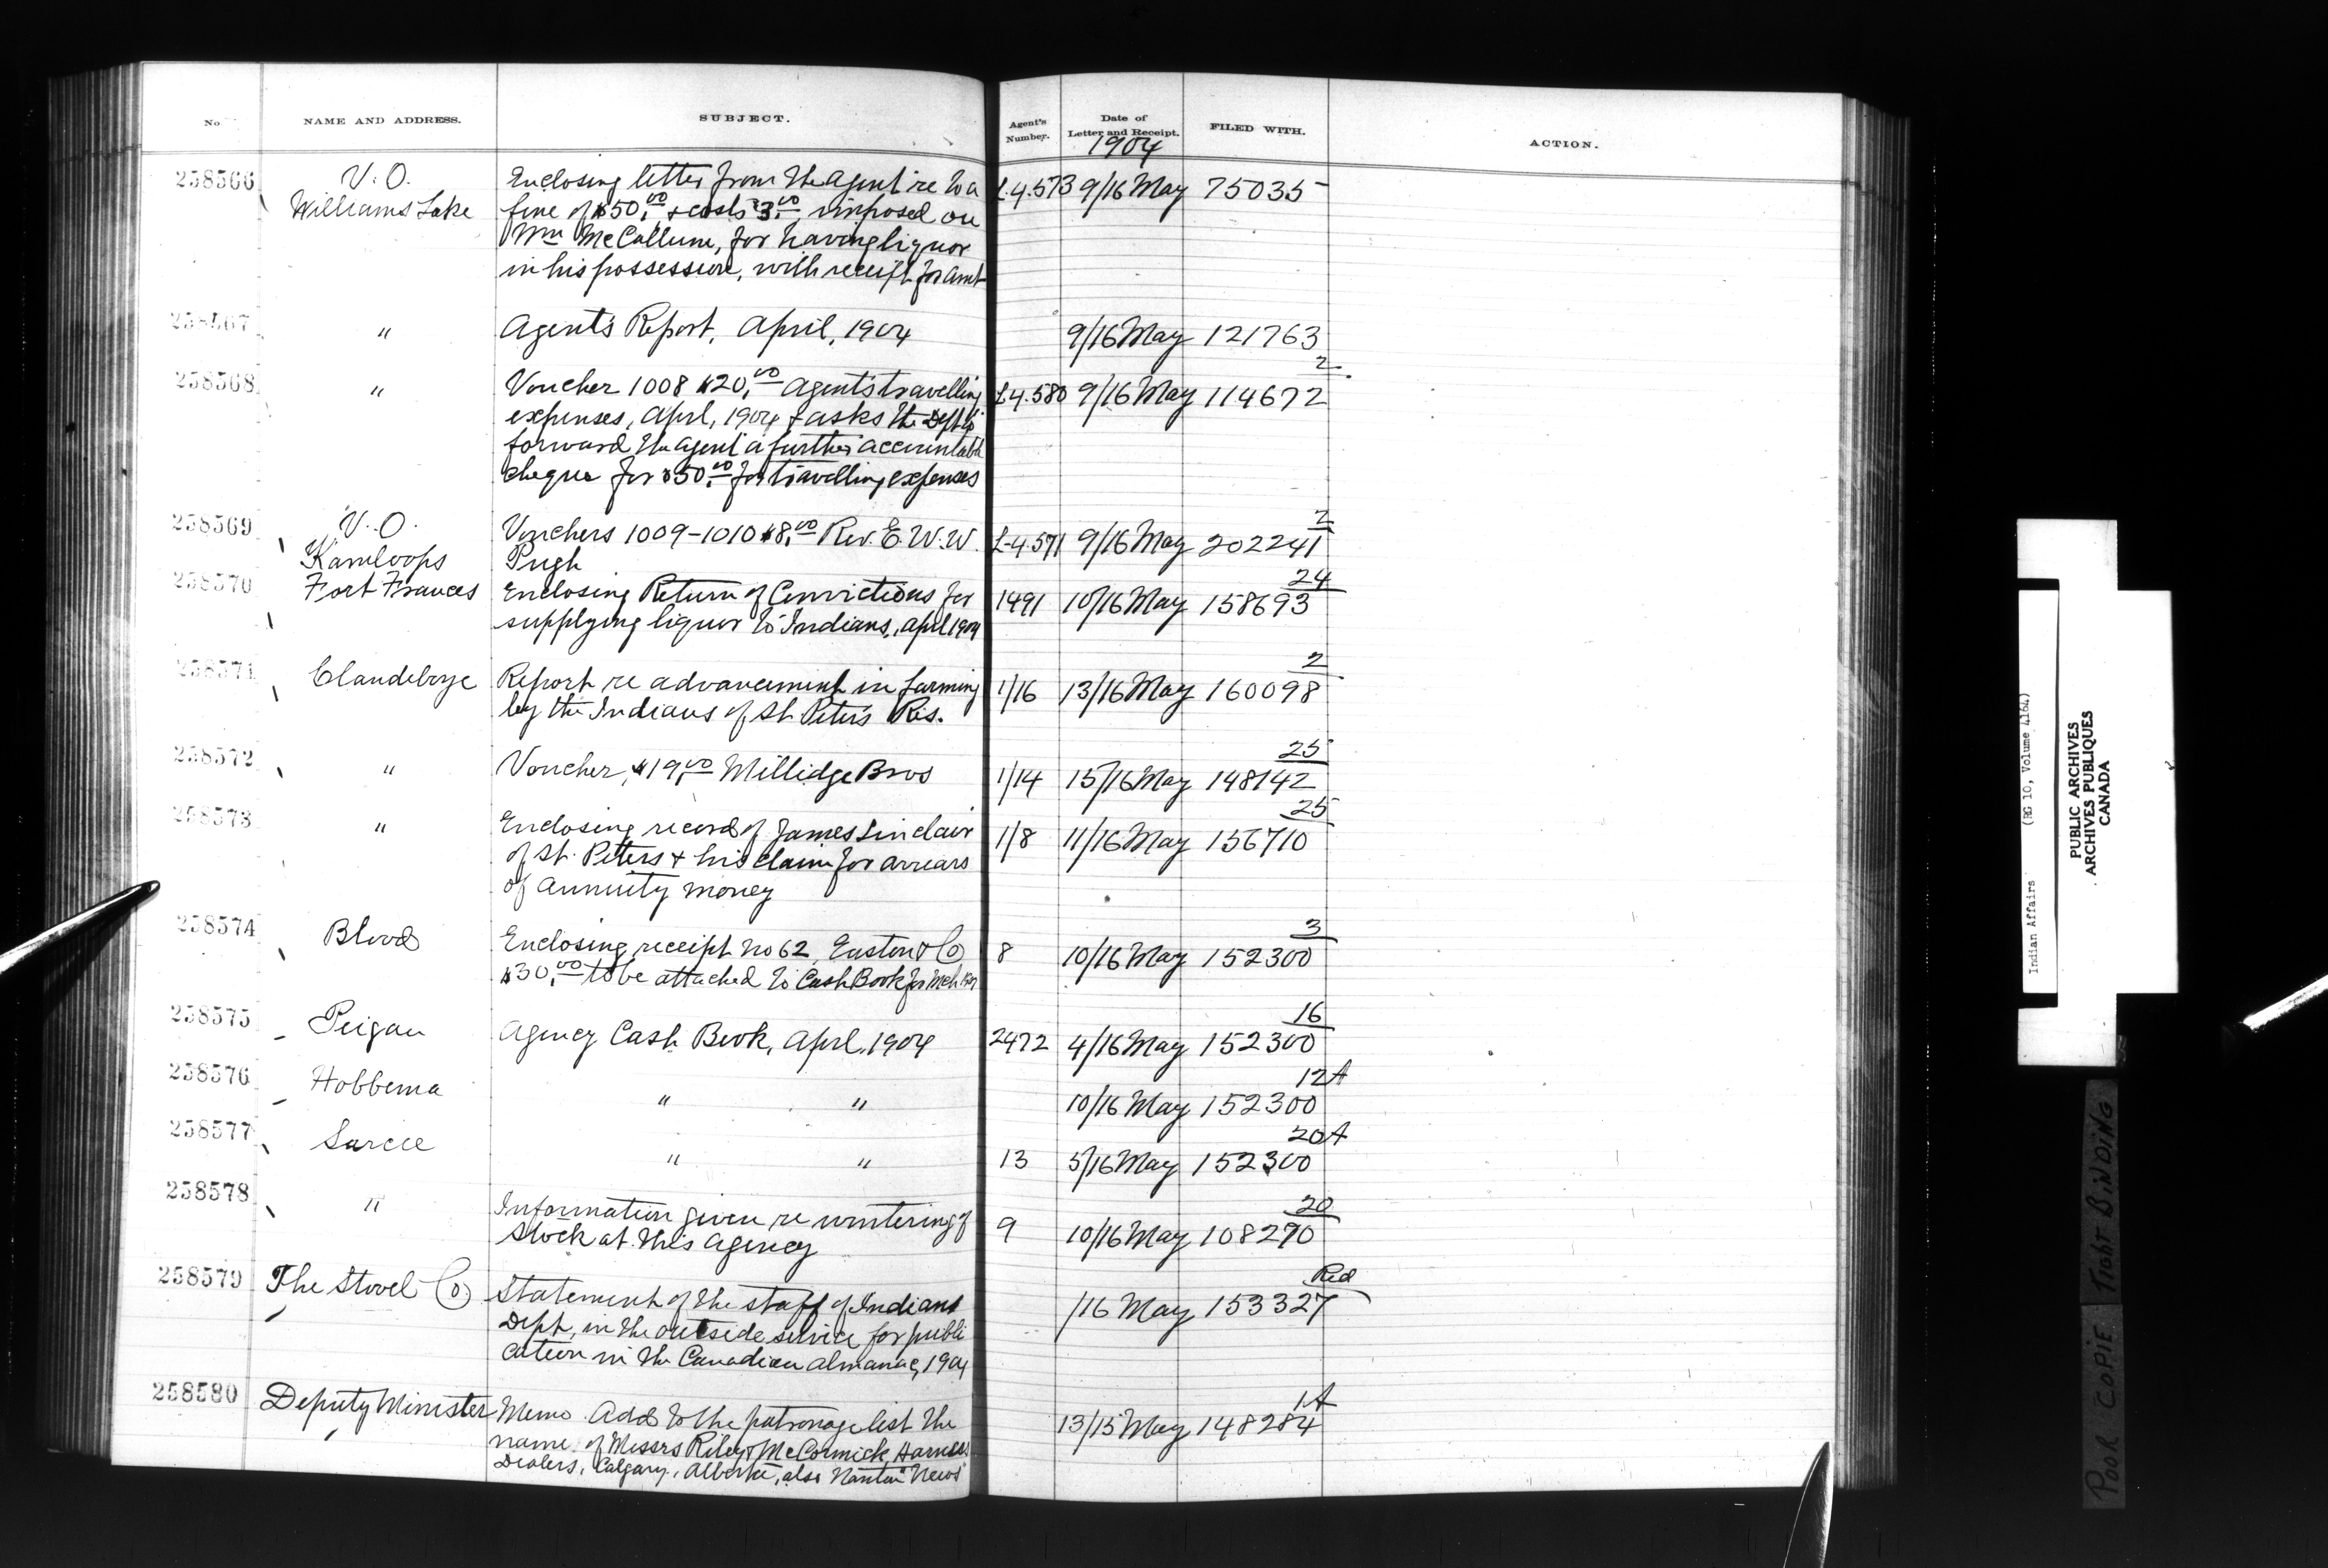 No. NAME AND ADDRESS. SUBJECT. Agent's Number. Date of Letter and Receipt. FILED WITH. ACTION.
1904
258566 V. O. Enclosing letter from the Agent re to a L.4.573 9/16 May 75035
Williams Lake fine of $50.00 & costs $3.00 imposed on
Wm McCallum, for having liquor
in his possession, with receipt for amt
258567 " Agent's Report, April, 1904 9/16 May 121763
2
258568 " Voucher 1008 $20.00 Agent's travelling L4.580 9/16 May 114672
expenses, April, 1904 & asks the Dept to
forward the Agent a further accountable
cheque for $50.00 for travelling expenses
2
258569 V. O. Vouchers 1009-1010 $8.00 Rev. E. W. W. L-4.571 9/16 May 202241
Kamloops Pugh
24
258570 Fort Frances Enclosing Return of Convictions for 1491 10/16 May 158693
supplying liquor to Indians, April 1904
2
258571 Clandeboye Report re advancement in farming 1/16 13/16 May 160098
by the Indians of St. Peter's Res.
25
258572 " Voucher, $19.00 Millidge Bros 1/14 15/16 May 148142
25
258573 " Enclosing record of James Sinclair 1/8 11/16 May 156710
of St. Peters & his claim for arrears
of annuity money
3
258574 Blood Enclosing receipt no 62, Easton & Co 8 10/16 May 152300
$30.00 to be attached to Cash Book for Mch
16
258575 Peigan Agency Cash Book, April, 1904 2472 4/16 May 152300
12A
258576 Hobbema " " 10/16 May 152300
20A
258577 Sarcee " " 13 5/16 May 152300
20
258578 " Information given re wintering of 9 10/16 May 108270
stock at this Agency
Red
258579 The Stovel Co. Statement of the staff of Indians /16 May 153327
Dept, in the outside service for publi
cation in the Canadian Almanac, 1904
1A
258580 Deputy Minister Memo. Add to the patronage list the 13/15 May 148284
name of Messrs Riley & McCormick, Harness
Dealers, Calgary, Alberta, also Nanton "News"
Indian Affairs (RG 10, Volume 4164)
PUBLIC ARCHIVES
ARCHIVES PUBLIQUES
CANADA
POOR COPIE TIGHT BINDING